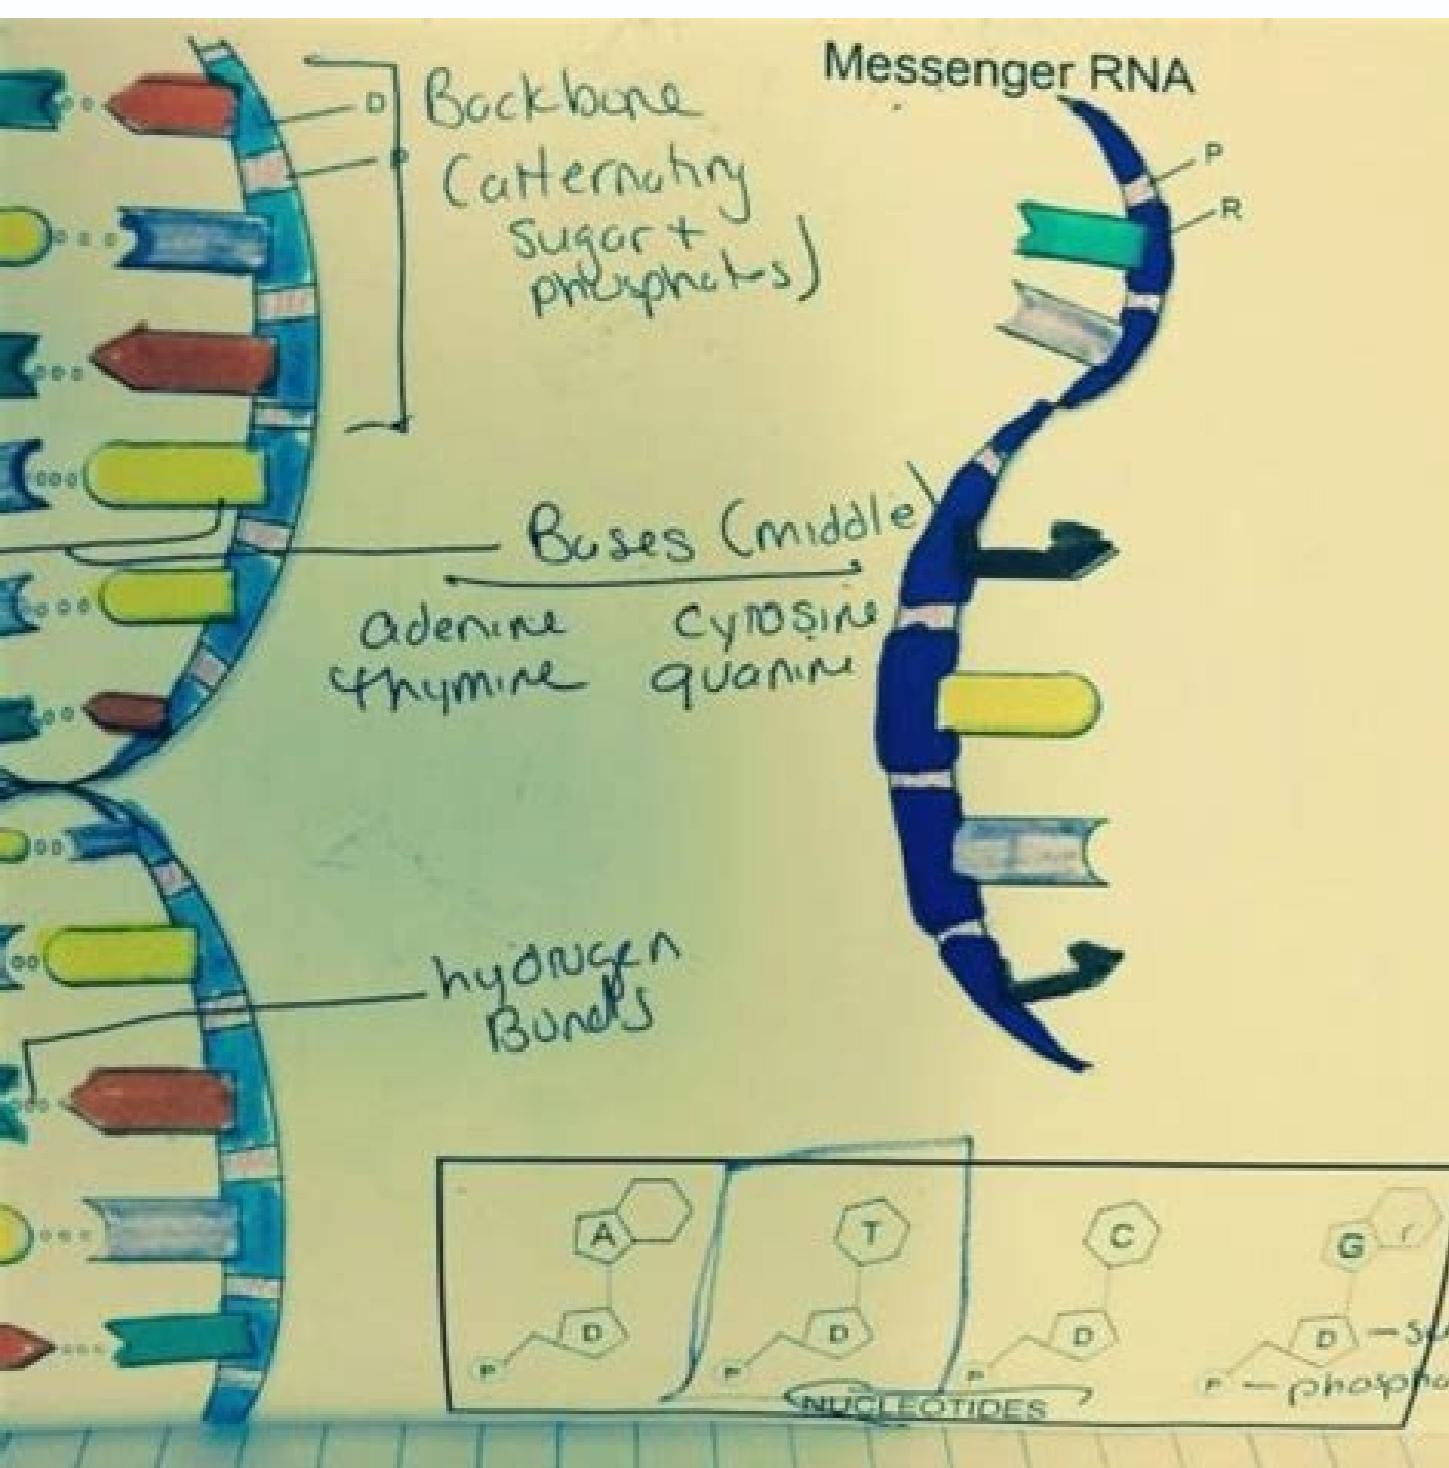 Messenger RNA
D
P
Backbone
(alternating
sugar +
phosphates)
P
R
Bases (middle)
adenine cytosine
thymine guanine
hydrogen
Bonds
A T C G
D D D D
P P P P
NUCLEOTIDES